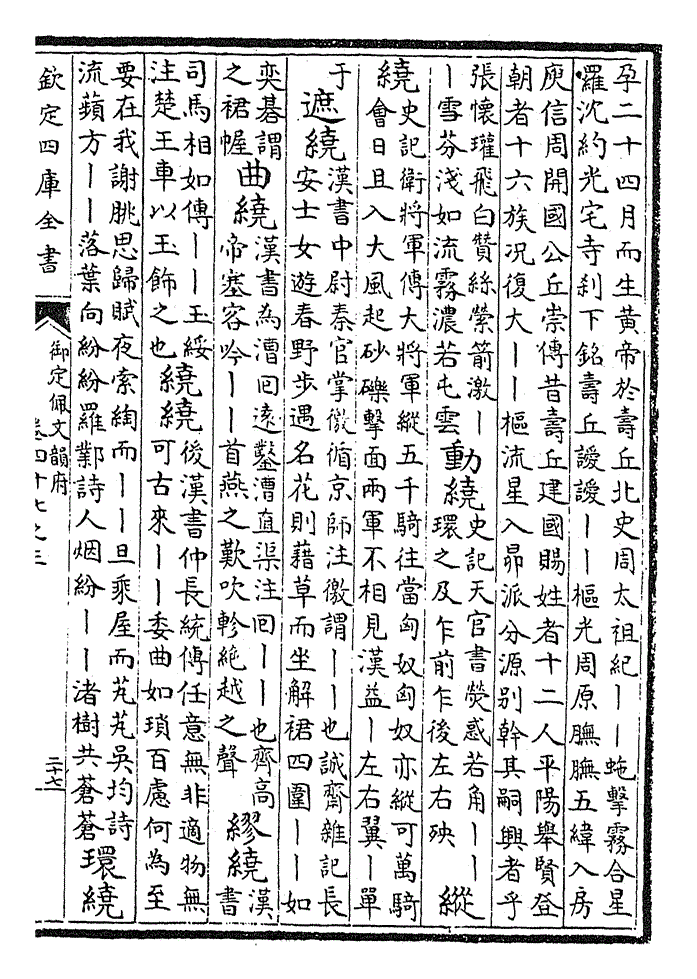 孕二十四月而生黄帝於壽丘北史周太祖紀丨丨虵擊霧合星
羅沈約光宅寺刹下銘壽丘靉靉丨丨樞光周原膴膴五緯入房
庾信周開國公丘崇傳昔壽丘建國賜姓者十二人平陽舉賢登
朝者十六族况復大丨丨樞流星入昴派分源别幹其嗣興者乎
張懷瓘飛白贊絲縈箭激丨
丨雪芬淺如流霧濃若屯雲
動繞
史記天官書熒惑若角丨丨
環之及乍前乍後左右殃
縱
繞
史記衛將軍傳大將軍縱五千騎往當匈奴匈奴亦縱可萬騎
會日且入大風起砂礫擊面兩軍不相見漢益丨左右翼丨單
于
遮繞
漢書中尉秦官掌徼循京師注徼謂丨丨也誠齋雜記長
安士女遊春野步遇名花則藉草而坐解裙四圍丨丨如
奕碁謂
之裙幄
曲繞
漢書為漕囘遠鑿漕直渠注囘丨丨也齊高
帝塞客吟丨丨首燕之歎吹軫絶越之聲
繆繞
漢
書
司馬相如傳丨丨玉綏
注楚王車以玉飾之也
繞繞
後漢書仲長統傳任意無非適物無
可古來丨丨委曲如瑣百慮何為至
要在我謝朓思歸賦夜索綯而丨丨旦乘屋而芃芃吳均詩
流蘋方丨丨落葉向紛紛羅鄴詩人烟紛丨丨渚樹共蒼蒼
環繞
欽定四庫全書
御定佩文韻府
卷四十七之三
二十七